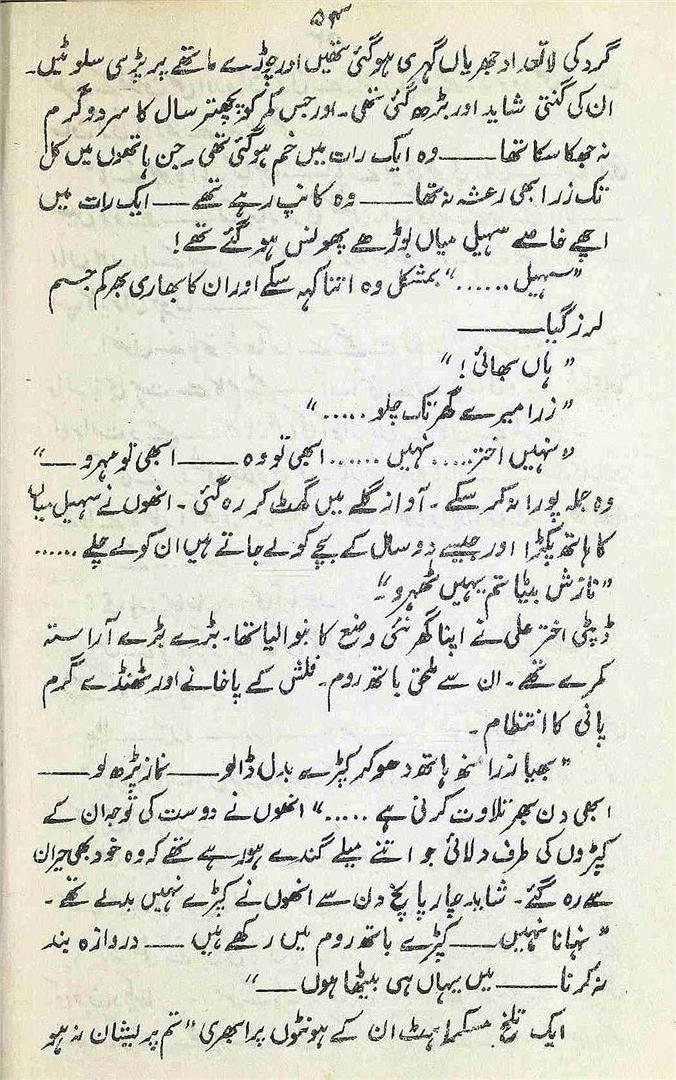 ۵۴
گرد کی لاتعداد جھریاں گہری ہوگئی تھیں اور چوڑے ماتھے پر پڑی سلوٹیں۔
ان کی گنتی شاید اور بڑھ گئی تھی۔ اور جس کمر کو پچھتر سال کا سرد و گرم
نہ جھکا سکا تھا ——— وہ ایک رات میں خم ہوگئی تھی۔ جن ہاتھوں میں کل
تک ذرا بھی رعشہ نہ تھا ——— وہ کانپ رہے تھے — ایک رات میں
اچھے خاصے سہیل میاں بوڑھے پھونس ہوگئے تھے!
"سہیل ......" بمشکل وہ اتنا کہہ سکے اور ان کا بھاری بھرکم جسم
لرز گیا ———
"ہاں بھائی!"
"ذرا میرے گھر تک چلو ....."
"نہیں اختر ..... نہیں ...... ابھی تو وہ ——— ابھی تو مہرو —"
وہ جملہ پورا نہ کر سکے۔ آواز گلے میں گھٹ کر رہ گئی۔ انھوں نے سہیل میاں
کا ہاتھ پکڑا اور جیسے دو سال کے بچے کو لے جاتے ہیں ان کو لے چلے ......
"نازش بیٹا تم یہیں ٹھہرو"۔
ڈپٹی اختر علی نے اپنا گھر نئی وضع کا بنوا لیا تھا۔ بڑے بڑے آراستہ
کمرے تھے۔ ان سے ملحق باتھ روم۔ فلش کے پاخانے اور ٹھنڈے گرم
پانی کا انتظام۔
"بھیا ذرا منھ ہاتھ دھو کر کپڑے بدل ڈالو ——— نماز پڑھ لو ———
ابھی دن بھر تلاوت کرنی ہے ....." انھوں نے دوست کی توجہ ان کے
کپڑوں کی طرف دلائی جو اتنے میلے گندے ہو رہے تھے کہ وہ خود بھی حیران
سے رہ گئے۔ شاید چار پانچ دن سے انھوں نے کپڑے نہیں بدلے تھے۔
"نہانا نہیں ——— کپڑے باتھ روم میں رکھے ہیں — دروازہ بند
نہ کرنا ——— میں یہاں ہی بیٹھا ہوں —"
ایک تلخ مسکراہٹ ان کے ہونٹوں پر ابھری "تم پریشان نہ ہو